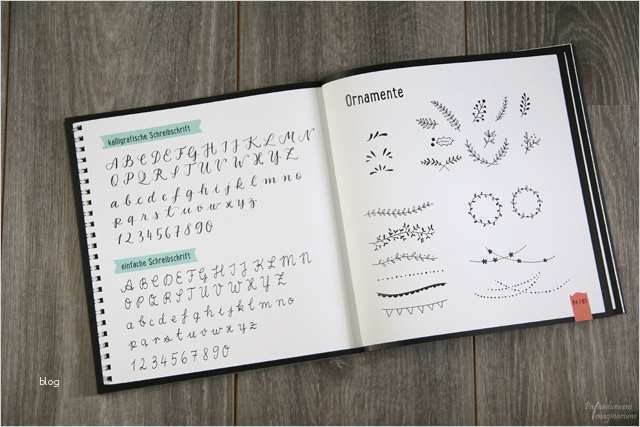 kalligrafische Schreibschrift
A B C D E F G H I J K L M N
O P Q R S T U V W X Y Z
a b c d e f g h i j k l m n o
p q r s t u v w x y z
1 2 3 4 5 6 7 8 9 0
einfache Schreibschrift
A B C D E F G H I J K L M N
O P Q R S T U V W X Y Z
a b c d e f g h i j k l m n o
p q r s t u v w x y z
1 2 3 4 5 6 7 8 9 0
Ornamente
blog